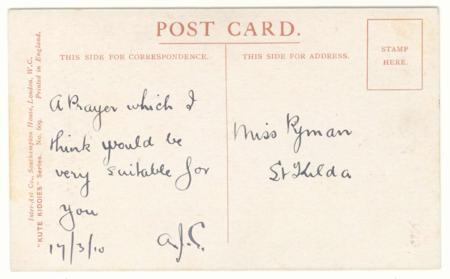 POST CARD.
THIS SIDE FOR CORRESPONDENCE.
THIS SIDE FOR ADDRESS.
STAMP
HERE.
Inter-Art Co., Southampton House, London, W.C.
"KUTE KIDDIES" Series. No. 609. Printed in England.
A Prayer which I
think would be
very suitable for
you
17/3/10
Miss Pyman
St Kilda